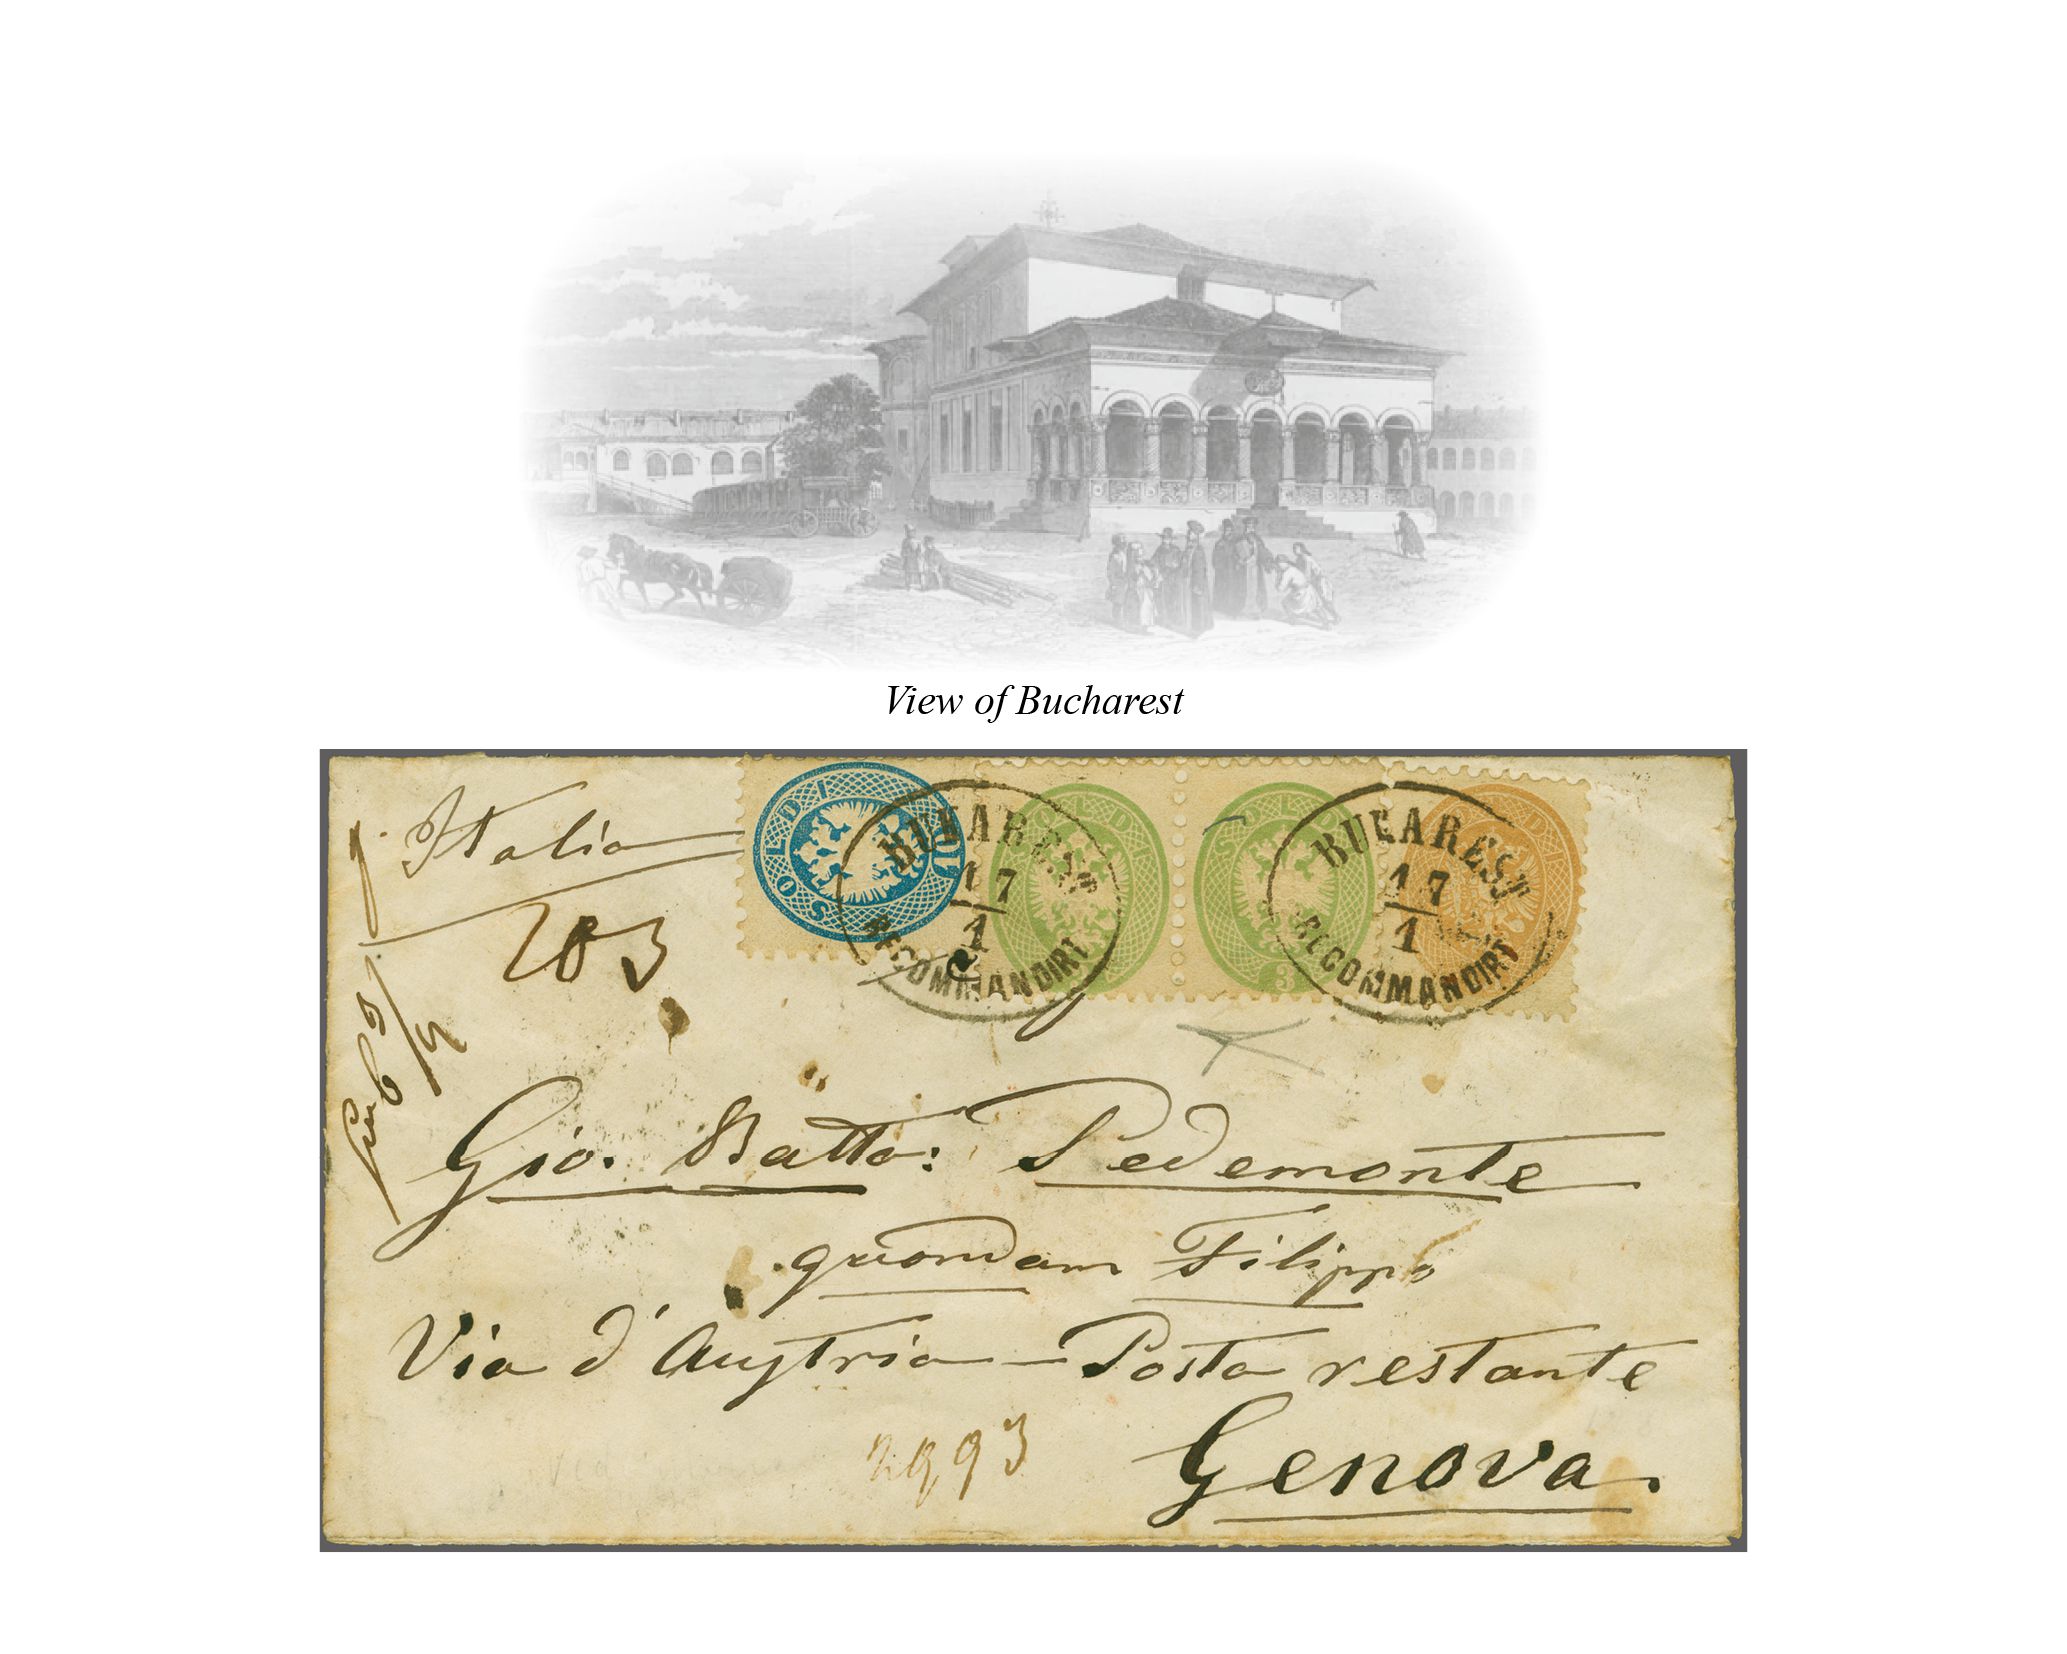 View of Bucharest
Italia
203
SOLDI
BUKAREST
17
1
RECOMMANDIRT
SOLDI
SOLDI
3
BUKAREST
17
1
RECOMMANDIRT
SOLDI
Gio. Batta: Pedemonte
quondam Filippo
Via d'Austria – Posta restante
2993
Genova.